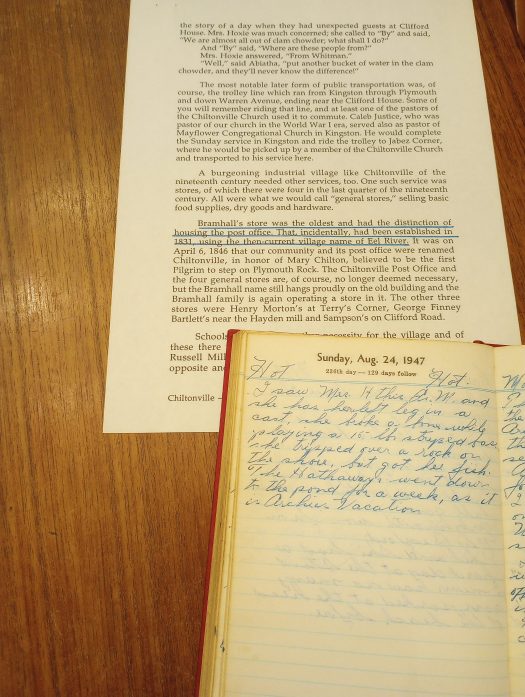 the story of a day when they had unexpected guests at Clifford
House. Mrs. Hoxie was much concerned; she called to "By" and said,
"We are almost all out of clam chowder; what shall I do?"
And "By" said, "Where are these people from?"
Mrs. Hoxie answered, "From Whitman."
"Well," said Abiatha, "put another bucket of water in the clam
chowder, and they'll never know the difference!"
The most notable later form of public transportation was, of
course, the trolley line which ran from Kingston through Plymouth
and down Warren Avenue, ending near the Clifford House. Some of
you will remember riding that line, and at least one of the pastors
of the Chiltonville Church used it to commute. Caleb Justice, who was
pastor of our church in the World War I era, served also as pastor of
Mayflower Congregational Church in Kingston. He would complete
the Sunday service in Kingston and ride the trolley to Jabez Corner,
where he would be picked up by a member of the Chiltonville Church
and transported to his service here.
A burgeoning industrial village like Chiltonville of the
nineteenth century needed other services, too. One such service was
stores, of which there were four in the last quarter of the nineteenth
century. All were what we would call "general stores," selling basic
food supplies, dry goods and hardware.
Bramhall's store was the oldest and had the distinction of
housing the post office. That, incidentally, had been established in
1831, using the then-current village name of Eel River. It was on
April 6, 1846 that our community and its post office were renamed
Chiltonville, in honor of Mary Chilton, believed to be the first
Pilgrim to step on Plymouth Rock. The Chiltonville Post Office and
the four general stores are, of course, no longer deemed necessary,
but the Bramhall name still hangs proudly on the old building and the
Bramhall family is again operating a store in it. The other three
stores were Henry Morton's at Terry's Corner, George Finney
Bartlett's near the Hayden mill and Sampson's on Clifford Road.
Schools necessity for the village and of
these there
Russell Mill
opposite and
Chiltonville –
Sunday, Aug. 24, 1947
236th day — 129 days follow
Hot Hot.
I saw Mrs. H this P.M and
she has her left leg in a
cast, she broke a bone while
playing a 15 lb striped bass
she tripped over a rock on
the shore, but got her fish.
The Hathaways went down
to the pond for a week, as it
is Archies Vacation